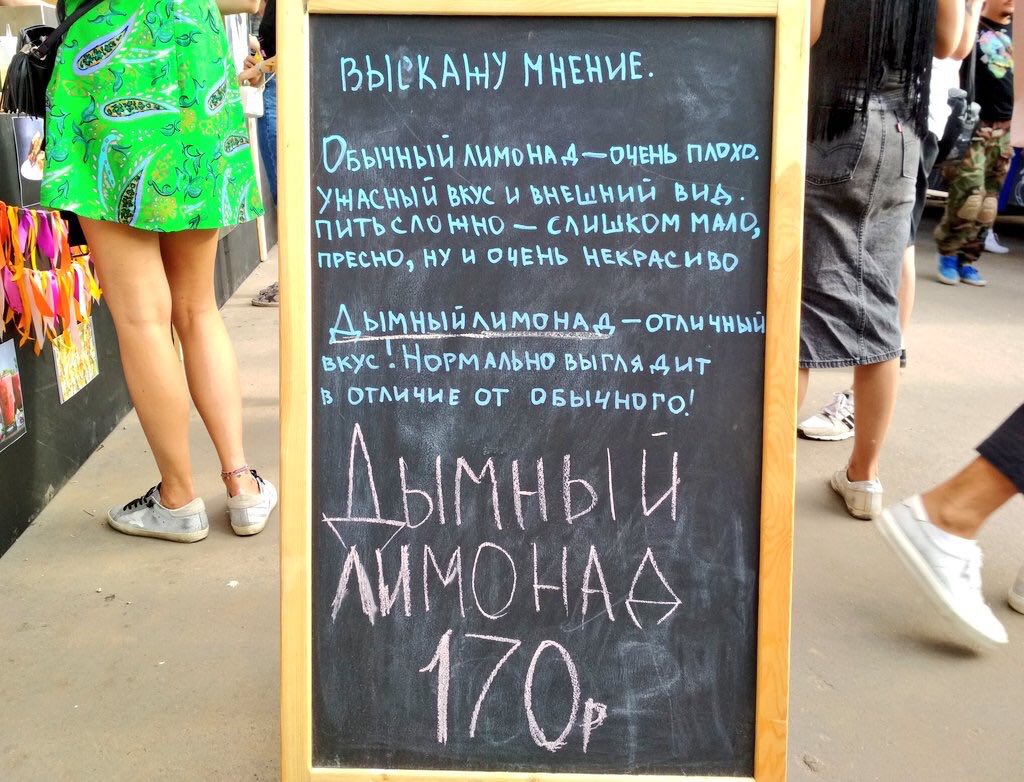 ВЫСКАЖУ МНЕНИЕ.
ОБЫЧНЫЙ ЛИМОНАД — ОЧЕНЬ ПЛОХО.
УЖАСНЫЙ ВКУС И ВНЕШНИЙ ВИД.
ПИТЬ СЛОЖНО — СЛИШКОМ МАЛО,
ПРЕСНО, НУ И ОЧЕНЬ НЕКРАСИВО
ДЫМНЫЙ ЛИМОНАД — ОТЛИЧНЫЙ
ВКУС! НОРМАЛЬНО ВЫГЛЯДИТ
В ОТЛИЧИЕ ОТ ОБЫЧНОГО!
ДЫМНЫЙ
ЛИМОНАД
170р